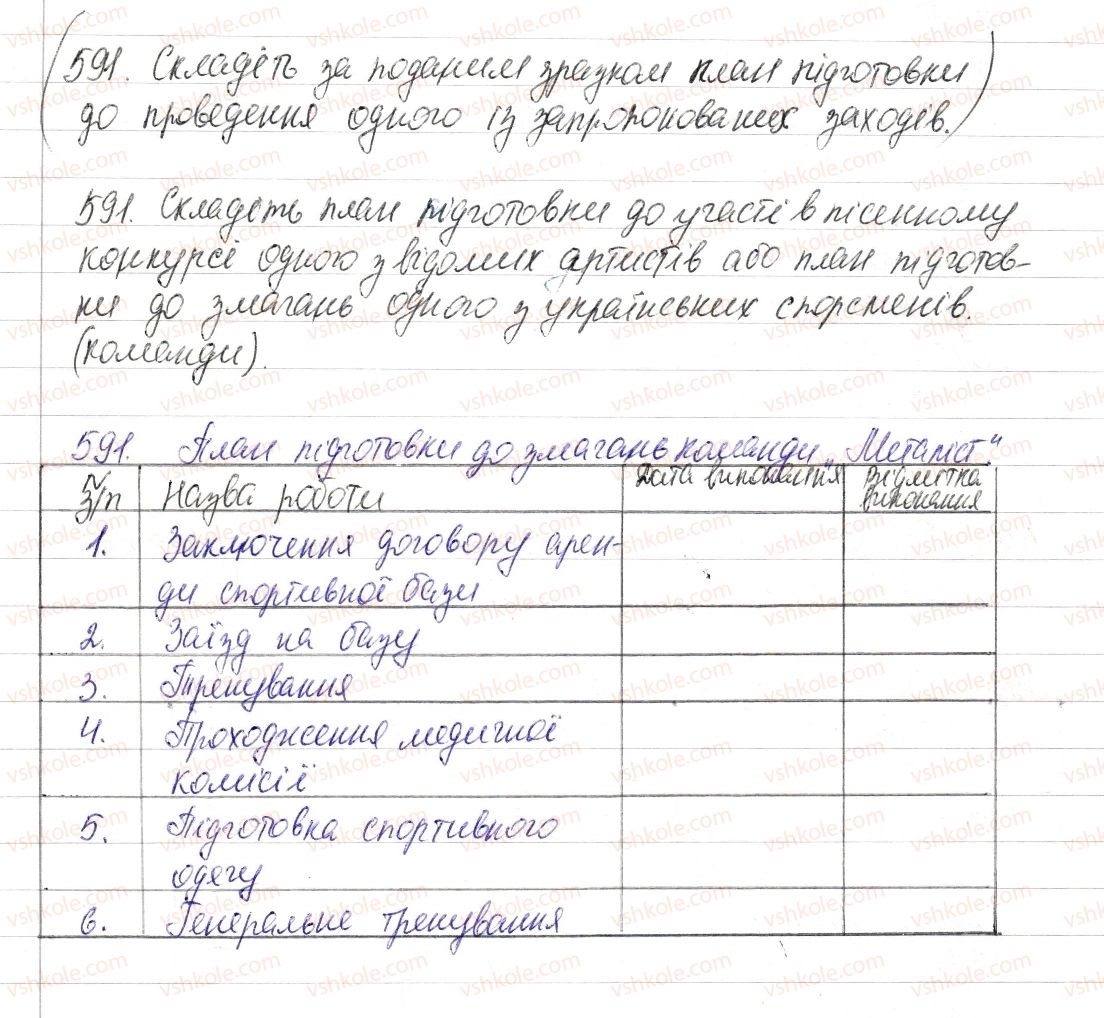 (591. Складіть за поданим зразком план підготовки
до проведення одного із запропонованих заходів.)
591. Складіть план підготовки до участі в пісенному
конкурсі одного з відомих артистів або план підготов-
ки до змагань одного з українських спорсменів.
(команди).
591. План підготовки до змагань команди „Металіст“
№ з/п Назва роботи Дата виконання Відмітка виконання
1. Заключення договору арен-
ди спортивної бази
2. Заїзд на базу
3. Тренування
4. Проходження медичної
комісії
5. Підготовка спортивного
одягу
6. Генеральне тренування
vshkole.com